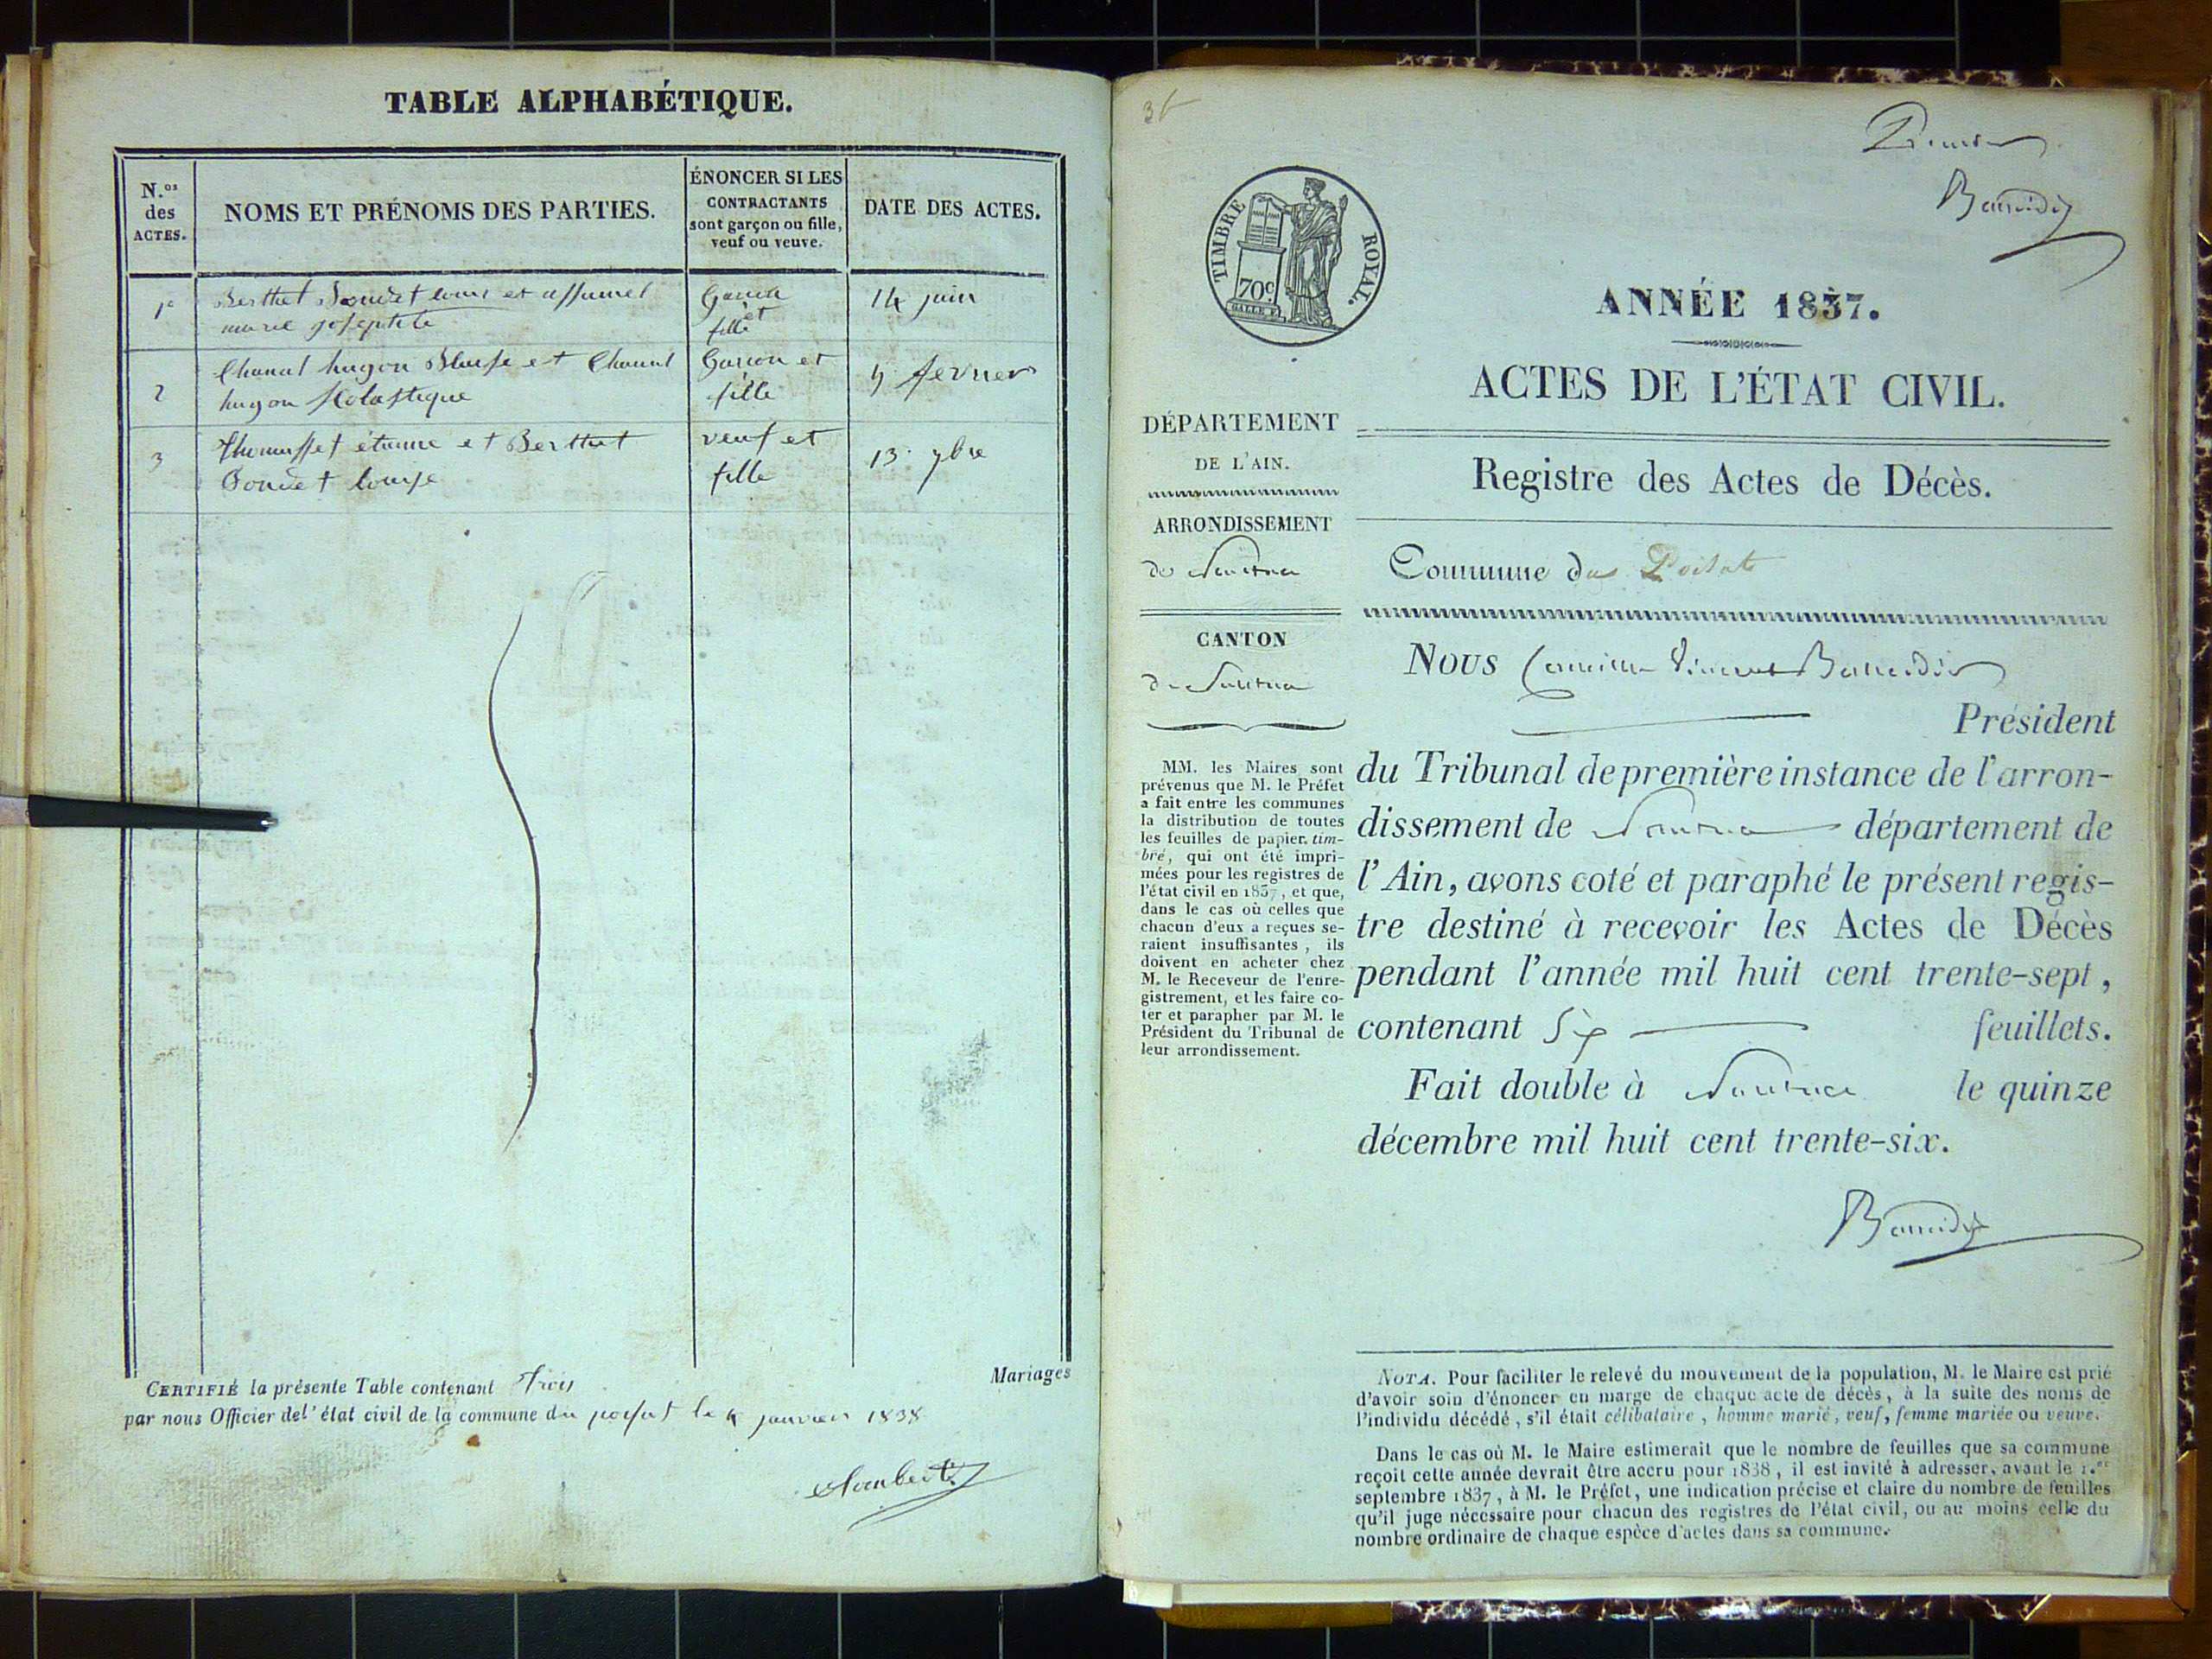 TABLE ALPHABÉTIQUE.
N.os des ACTES.
NOMS ET PRÉNOMS DES PARTIES.
ÉNONCER SI LES CONTRACTANTS sont garçon ou fille, veuf ou veuve.
DATE DES ACTES.
1º Berthet Bondet louis et
marie josephte
fille
14 juin
2 Chanal hugon Blaise et Chanal
hugon Scolastique
Garcon et
fille
fevrier
3 Thomasset étienne et Berthet
Bondet louise
veuf et
fille
13. 7bre
CERTIFIÉ la présente Table contenant Trois Mariages
par nous Officier del' état civil de la commune du poisat le 4 janvier 1838
TIMBRE ROYAL.
70c
ANNÉE 1837.
ACTES DE L'ÉTAT CIVIL.
Registre des Actes de Décès.
DÉPARTEMENT
DE L'AIN.
ARRONDISSEMENT
de Nantua
CANTON
de Nantua
MM. les Maires sont
prévenus que M. le Préfet
a fait entre les communes
la distribution de toutes
les feuilles de papier tim-
bré, qui ont été impri-
mées pour les registres de
l'état civil en 1837, et que,
dans le cas où celles que
chacun d'eux a reçues se-
raient insuffisantes, ils
doivent en acheter chez
M. le Receveur de l'enre-
gistrement, et les faire co-
ter et parapher par M. le
Président du Tribunal de
leur arrondissement.
Commune du Poisat
Nous Camille Vincent
Président
du Tribunal de première instance de l'arron-
dissement de Nantua département de
l'Ain, avons coté et paraphé le présent regis-
tre destiné à recevoir les Actes de Décès
pendant l'année mil huit cent trente-sept,
contenant Six feuillets.
Fait double à Nantua le quinze
décembre mil huit cent trente-six.
NOTA. Pour faciliter le relevé du mouvement de la population, M. le Maire est prié
d'avoir soin d'énoncer en marge de chaque acte de décès, à la suite des noms de
l'individu décédé, s'il était célibataire, homme marié, veuf, femme mariée ou veuve.
Dans le cas où M. le Maire estimerait que le nombre de feuilles que sa commune
reçoit cette année devrait être accru pour 1838, il est invité à adresser, avant le 1.er
septembre 1837, à M. le Préfet, une indication précise et claire du nombre de feuilles
qu'il juge nécessaire pour chacun des registres de l'état civil, ou au moins celle du
nombre ordinaire de chaque espèce d'actes dans sa commune.